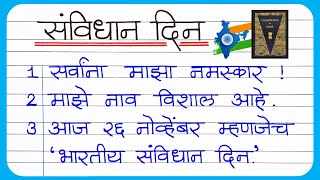 संविधान दिन
1 सर्वांना माझा नमस्कार !
2 माझे नाव विशाल आहे.
3 आज २६ नोव्हेंबर म्हणजेच
‘भारतीय संविधान दिन.’